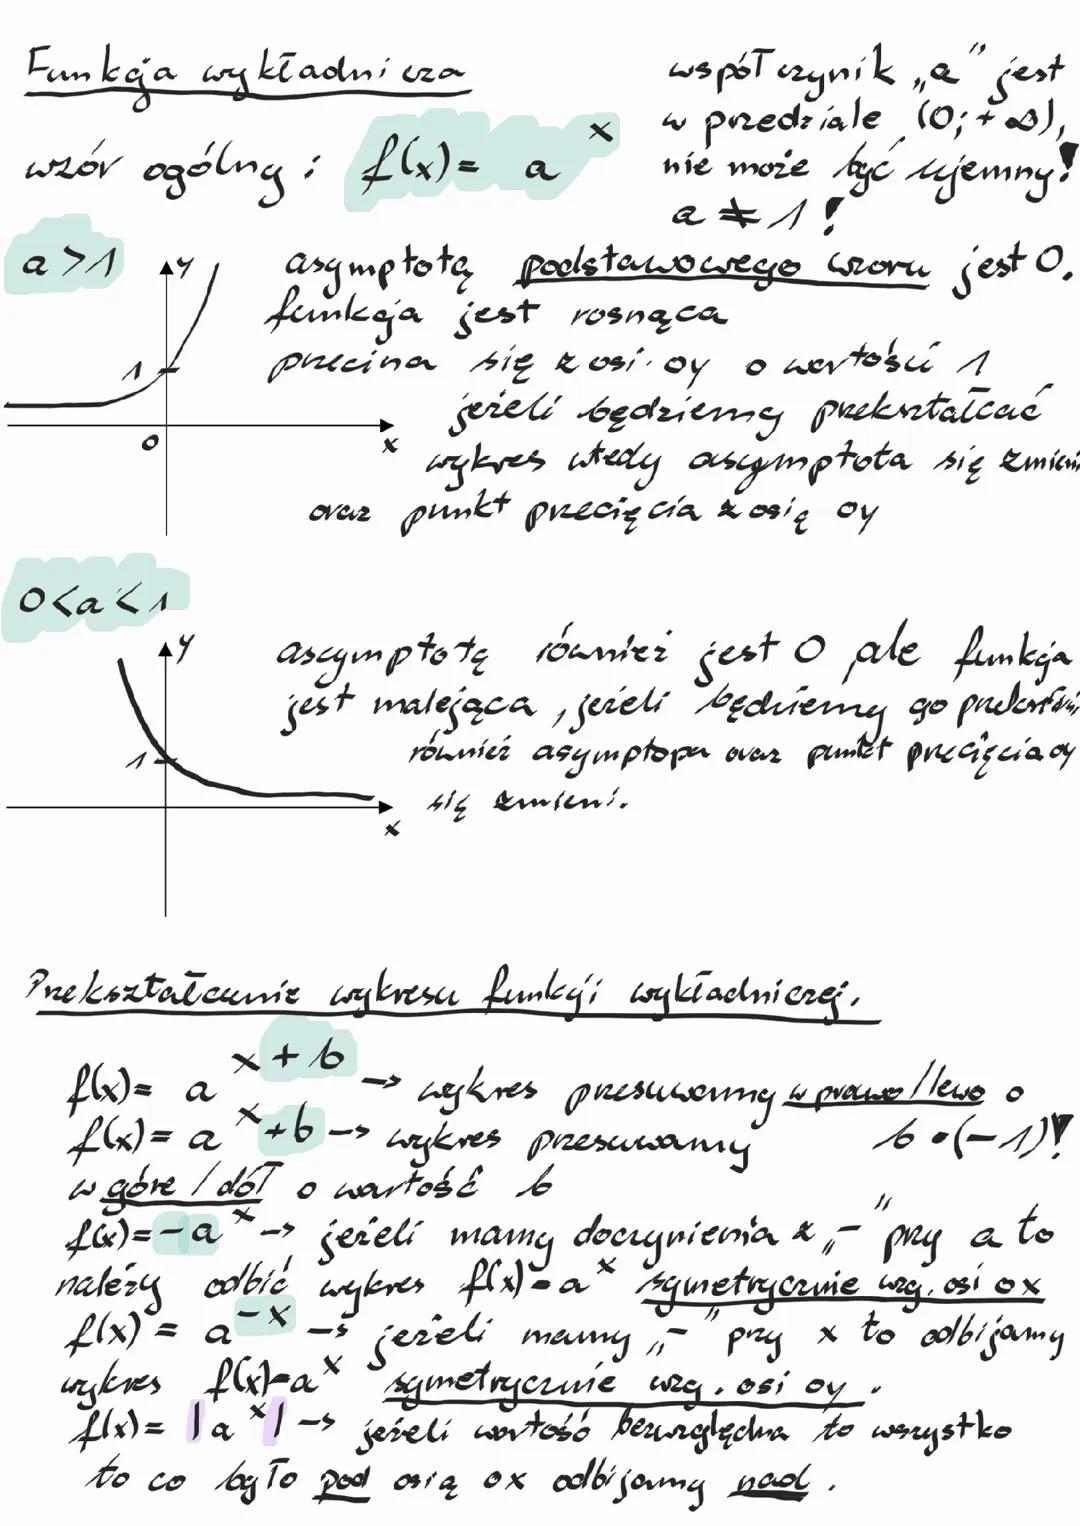 Funkcja wykładnicza
współczynik „a" jest
w przedziale (0;+∞),
wzór ogólny: f(x)= a^x
nie może być ujemny!
a ≠ 1!
a>1
y
1
0
x
asymptotą podstawowego wzoru jest 0.
funkcja jest rosnąca
przecina się z osi oy o wartości 1
jeżeli będziemy przekrztałcać
wykres wtedy asymptota się zmieni
oraz punkt przecięcia z osią oy
0<a<1
y
1
x
asymptotą również jest 0 ale funkcja
jest malejąca, jeżeli będziemy go
również asymptopa oraz punkt przecięcia oy
się zmieni.
Przekształcenie wykresu funkcji wykładniczej.
f(x)= a^{x+b} -> wykres przesuwamy w prawo/lewo o
b•(-1)!
f(x)= a^x+b -> wykres przesuwamy
w górę/dół o wartość b
f(x)=-a^x -> jeżeli mamy doczynienia z „-" przy a to
należy odbić wykres f(x)=a^x symetrycznie wzg. osi ox
f(x)= a^{-x} -> jeżeli mamy „-" przy x to odbijamy
wykres f(x)=a^x symetrycznie wzg. osi oy.
f(x)= |a^x| -> jeżeli wartość bezwzględna to wszystko
to co było pod osią ox odbijamy nad.